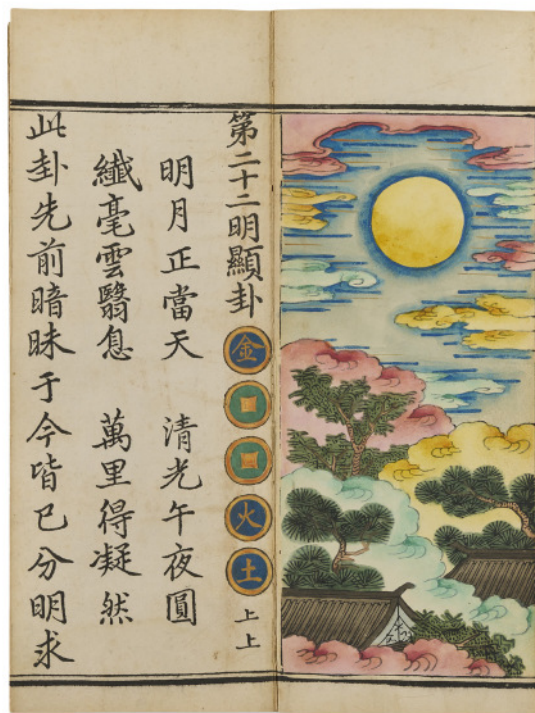 第二十二明顯卦 金 火 土 上上
明月正當天 清光午夜圓
纖毫雲翳息 萬里得凝然
此卦先前暗昧于今皆已分明求